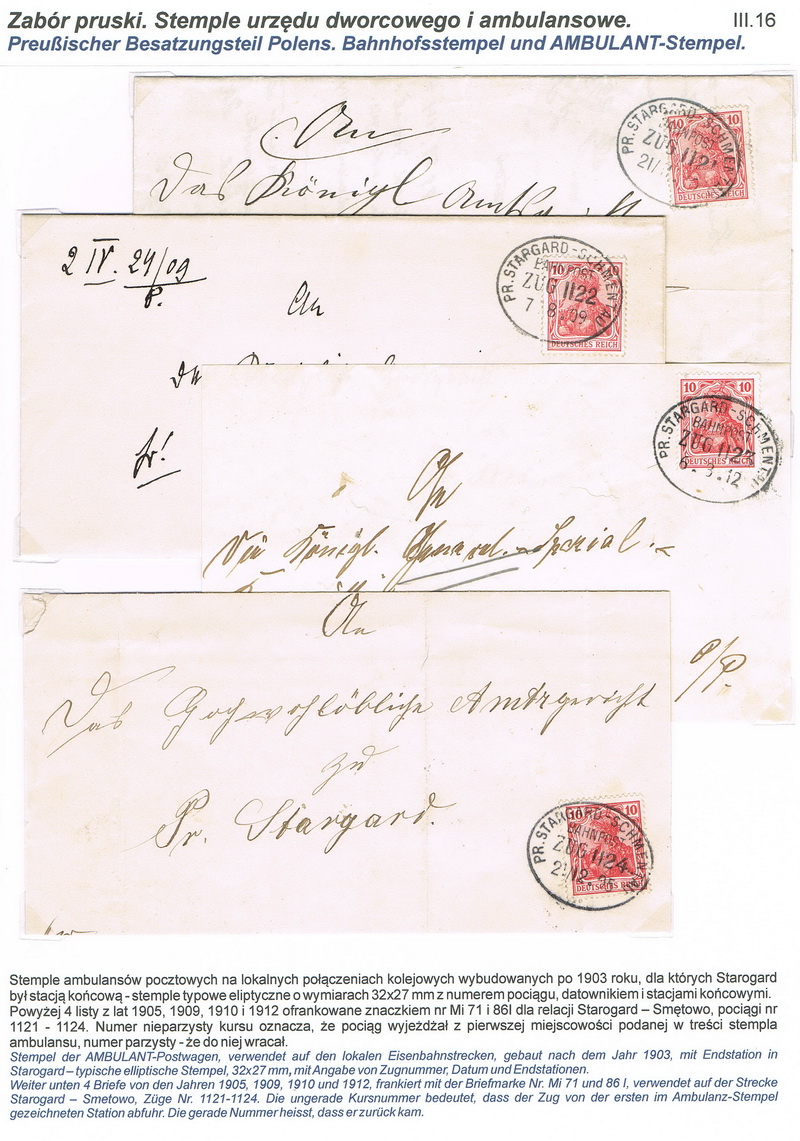 Zabór pruski. Stemple urzędu dworcowego i ambulansowe.
III.16
Preußischer Besatzungsteil Polens. Bahnhofsstempel und AMBULANT-Stempel.
An
Das Königl
PR. STARGARD-SCHMENTAU
BAHNPOST
ZUG 1121
10 10
2 IV. 24/09
An
PR. STARGARD-SCHMENTAU
BAHNPOST
ZUG 1122
7 8.09
10 10
DEUTSCHES REICH
fr!
PR. STARGARD-SCHMENTAU
BAHNPOST
ZUG 1122
.12
10 10
DEUTSCHES REICH
An
die Königl. General-Spezial-
An
Das Hochwohllöbliche Amtsgericht
zu
Pr. Stargard.
PR. STARGARD-SCHMENTAU
BAHNPOST
ZUG 1124
10 10
DEUTSCHES REICH
Stemple ambulansów pocztowych na lokalnych połączeniach kolejowych wybudowanych po 1903 roku, dla których Starogard
był stacją końcową - stemple typowe eliptyczne o wymiarach 32x27 mm z numerem pociągu, datownikiem i stacjami końcowymi.
Powyżej 4 listy z lat 1905, 1909, 1910 i 1912 ofrankowane znaczkiem nr Mi 71 i 86I dla relacji Starogard – Smętowo, pociągi nr
1121 - 1124. Numer nieparzysty kursu oznacza, że pociąg wyjeżdżał z pierwszej miejscowości podanej w treści stempla
ambulansu, numer parzysty - że do niej wracał.
Stempel der AMBULANT-Postwagen, verwendet auf den lokalen Eisenbahnstrecken, gebaut nach dem Jahr 1903, mit Endstation in
Starogard – typische elliptische Stempel, 32x27 mm, mit Angabe von Zugnummer, Datum und Endstationen.
Weiter unten 4 Briefe von den Jahren 1905, 1909, 1910 und 1912, frankiert mit der Briefmarke Nr. Mi 71 und 86 I, verwendet auf der Strecke
Starogard – Smetowo, Züge Nr. 1121-1124. Die ungerade Kursnummer bedeutet, dass der Zug von der ersten im Ambulanz-Stempel
gezeichneten Station abfuhr. Die gerade Nummer heisst, dass er zurück kam.